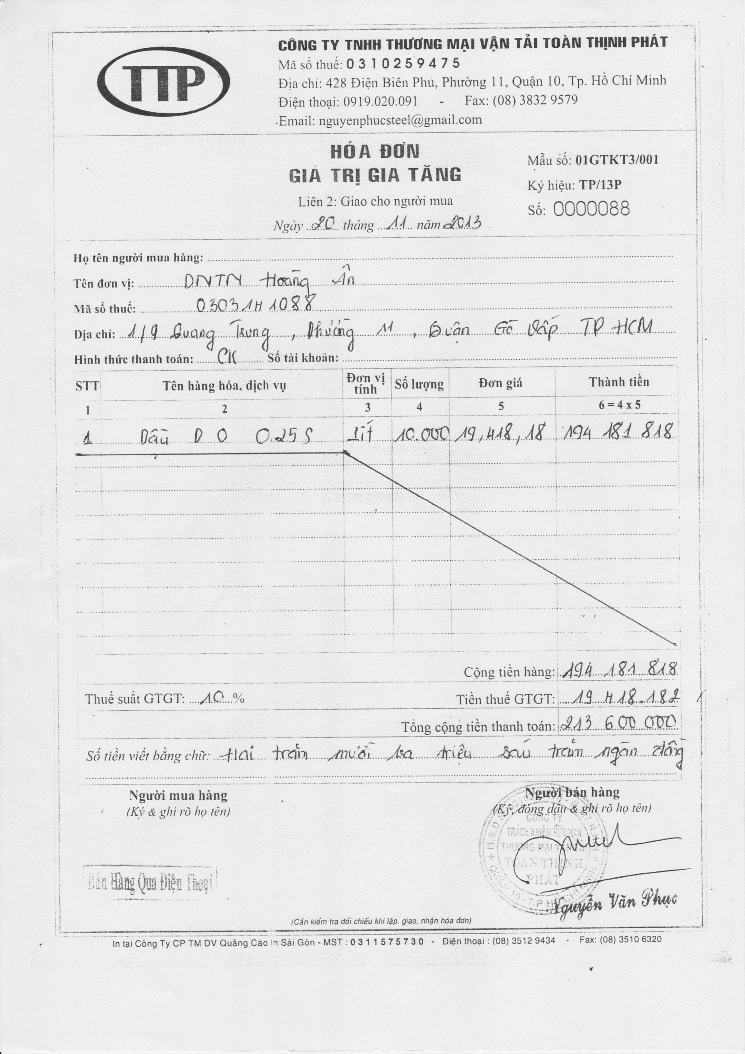 TTP
CÔNG TY TNHH THƯƠNG MẠI VẬN TẢI TOÀN THỊNH PHÁT
Mã số thuế: 0310259475
Địa chỉ: 428 Điện Biên Phủ, Phường 11, Quận 10, Tp. Hồ Chí Minh
Điện thoại: 0919.020.091 - Fax: (08) 3832 9579
Email: nguyenphucsteel@gmail.com
HÓA ĐƠN
GIÁ TRỊ GIA TĂNG
Liên 2: Giao cho người mua
Ngày 20 tháng 11 năm 2013
Mẫu số: 01GTKT3/001
Ký hiệu: TP/13P
Số: 0000088
Họ tên người mua hàng:
Tên đơn vị: DNTN Hoàng Ân
Mã số thuế: 0303141088
Địa chỉ: 1/9 Quang Trung, Phường 11, Quận Gò Vấp TP HCM
Hình thức thanh toán: CK Số tài khoản:
STT Tên hàng hóa, dịch vụ Đơn vị tính Số lượng Đơn giá Thành tiền
1 2 3 4 5 6 = 4 x 5
1 Dầu D O 0.25S Lít 10.000 19,418,18 194 181 818
Cộng tiền hàng: 194 181 818
Thuế suất GTGT: 10 % Tiền thuế GTGT: 19.418.182
Tổng cộng tiền thanh toán: 213 600 000
Số tiền viết bằng chữ: Hai trăm mười ba triệu sáu trăm ngàn đồng
Người mua hàng
(Ký & ghi rõ họ tên)
Người bán hàng
(Ký, đóng dấu & ghi rõ họ tên)
CÔNG TY
TRÁCH NHIỆM HỮU HẠN
THƯƠNG MẠI VẬN TẢI
TOÀN THỊNH
PHÁT
Bán Hàng Qua Điện Thoại
Nguyễn Văn Phục
(Cần kiểm tra đối chiếu khi lập, giao, nhận hóa đơn)
In tại Công Ty CP TM DV Quảng Cáo In Sài Gòn - MST : 0311575730 - Điện thoại : (08) 3512 9434 - Fax: (08) 3510 6320